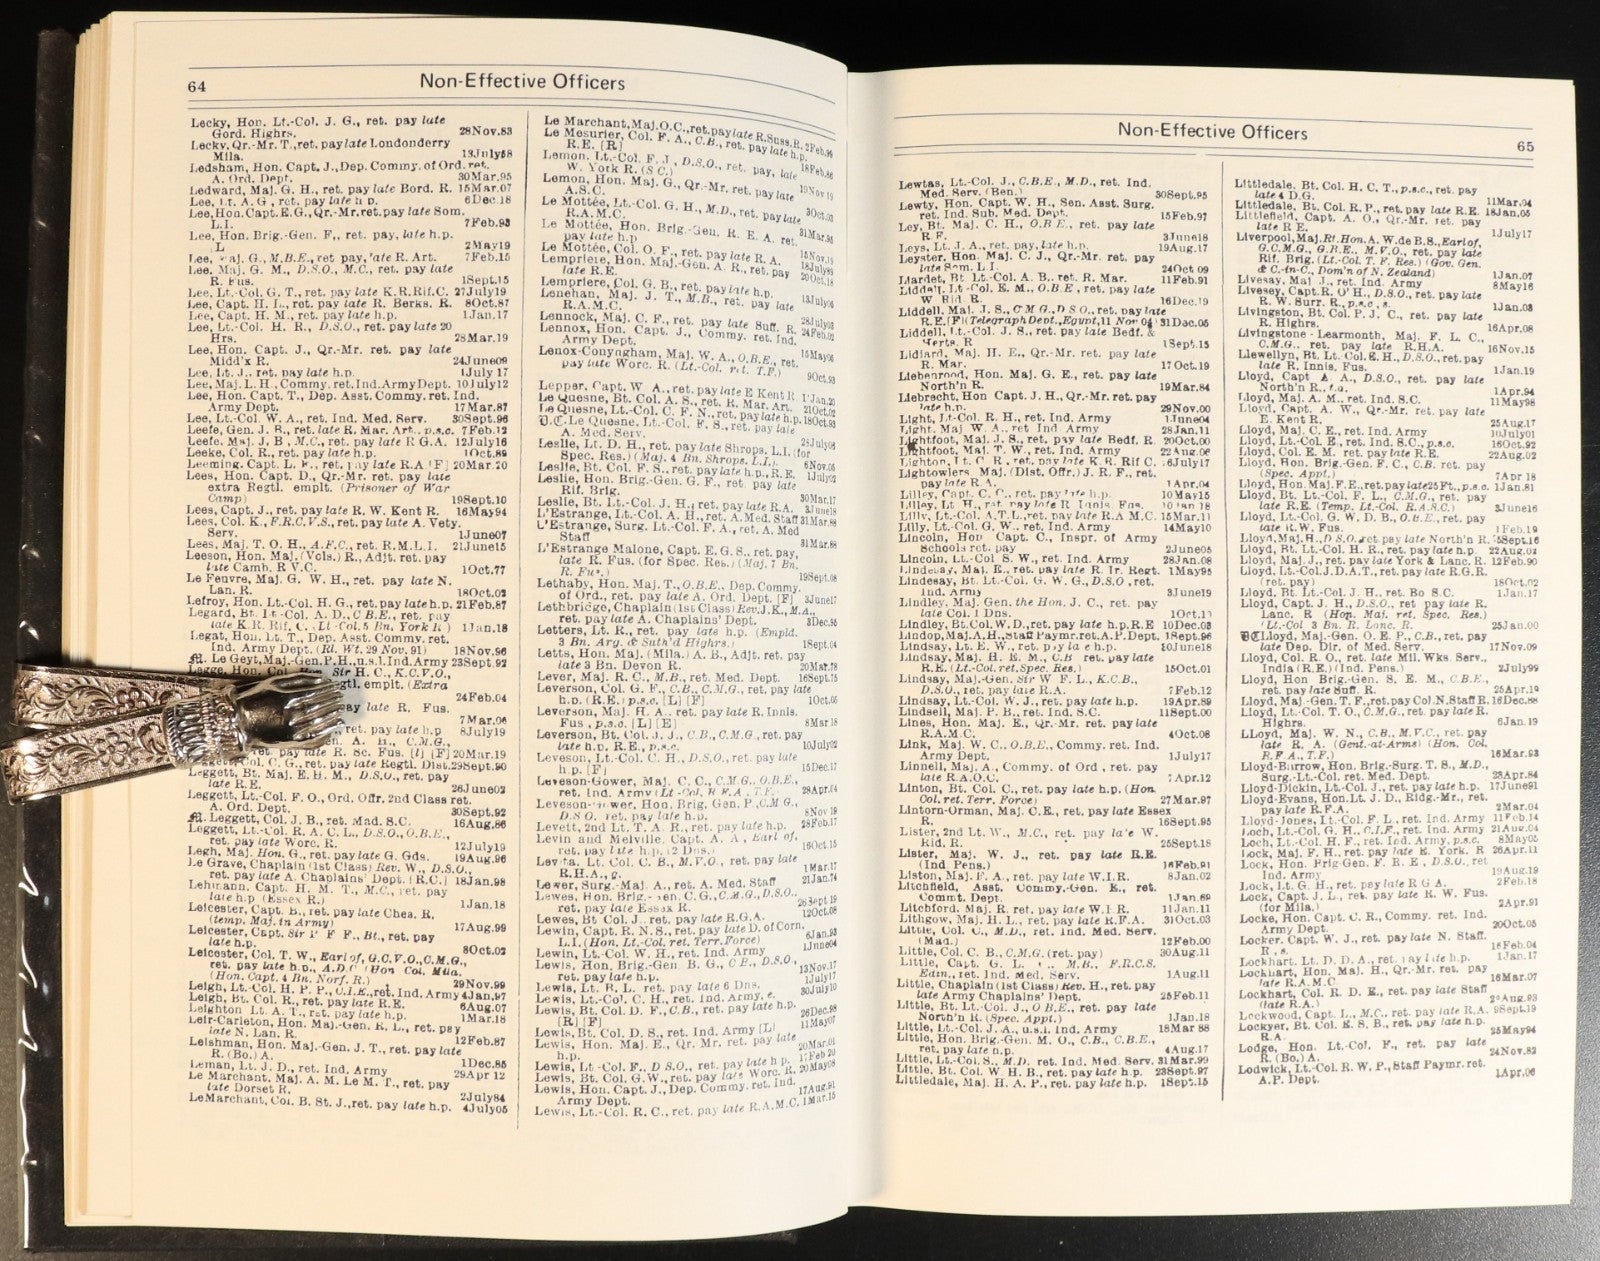 64
Non-Effective Officers
Lecky, Hon. Lt.-Col. J. G., ret. pay late
Gord. Highrs. 28Nov.83
Lecky, Qr.-Mr. T., ret. pay late Londonderry
Mila. 13July58
Ledsham, Hon. Capt. J., Dep. Commy. of Ord. ret.
A. Ord. Dept. 30Mar.95
Ledward, Maj. G. H., ret. pay late Bord. R. 15Mar.07
Lee, Lt. A. G., ret. pay late h.p. 6Dec.18
Lee, Hon. Capt. E.G., Qr.-Mr. ret. pay late Som.
L.I. 7Feb.93
Lee, Hon. Brig.-Gen. F., ret. pay, late h.p.
2May19
Lee, Maj. G., M.B.E., ret pay, late R. Art. 7Feb.15
Lee, Maj. G. M., D.S.O., M.C., ret. pay late
R. Fus. 1Sept.15
Lee, Lt.-Col. G. T., ret. pay late K.R.Rif.C. 27July19
Lee, Capt. H. I., ret. pay late R. Berks. R. 8Oct.87
Lee, Capt. H. M., ret. pay late h.p. 1Jan.17
Lee, Lt.-Col. H. R., D.S.O., ret. pay late 20
Hrs. 28Mar.19
Lee, Hon. Capt. J., Qr.-Mr. ret. pay late
Midd'x R. 24June09
Lee, Lt. J., ret. pay late h.p. 1July 17
Lee, Maj. L.H., Commy. ret. Ind. Army Dept. 10July12
Lee, Hon. Capt. T., Dep. Asst. Commy. ret. Ind.
Army Dept. 17Mar.87
Lee, Lt.-Col. W. A., ret. Ind. Med. Serv. 30Sept.96
Leefe, Gen. J. B., ret. late R. Mar. Art., p.s.c. 7Feb.12
Leefe, Maj. J. B., M.C., ret. pay late R G.A. 12July16
Leeke, Col. R., ret. pay late h.p. 1Oct.89
Leeming, Capt. L. F., ret. pay late R.A [F] 20Mar.20
Lees, Hon. Capt. D., Qr.-Mr. ret. pay late
extra Regtl. emplt. (Prisoner of War
Camp) 19Sept.10
Lees, Capt. J., ret. pay late R. W. Kent R. 16May94
Lees, Col. K., F.R.C.V.S., ret. pay late A. Vety.
Serv. 1June07
Lees, Maj. T. O. H., A.F.C., ret. R.M.L.I. 21June15
Leeson, Hon. Maj. (Vols.) R., Adjt. ret. pay
late Camb. R V.C. 1Oct.77
Le Feuvre, Maj. G. W. H., ret. pay late N.
Lan. R. 18Oct.02
Lefroy, Hon. Lt.-Col. H. G., ret. pay late h.p. 21Feb.87
Legard, Bt. Lt.-Col. A. D., C B E., ret. pay
late K.R. Rif. C., (Lt-Col. 5 Bn. York R.) 1Jan.18
Legat, Hon. Lt. T., Dep. Asst. Commy. ret.
Ind. Army Dept. (Rl. Wt. 29 Nov. 91) 18Nov.96
M. Le Geyt, Maj.-Gen. P.H., u.s.l. Ind. Army 23Sept.92
Sir H. C., K.C.V.O.,
emplt. (Extra
24Feb.04
pay late R. Fus.
7Mar.06
ret. pay late h.p 8July19
C.M.G.,
ret. pay late R. Sc. Fus. [l] [F] 20Mar.19
Leggett, Col. C. G., ret. pay late Regtl. Dist. 29Sept.90
Leggett, Bt. Maj. E. H. M., D.S.O., ret. pay
late R.E. 26June02
Leggett, Lt.-Col. F. O., Ord. Offr. 2nd Class ret.
A. Ord. Dept. 30Sept.92
M. Leggett, Col. J. B., ret. Mad. S.C. 16Aug.86
Leggett, Lt.-Col. R. A. C. L., D.S.O., O.B.E.,
ret. pay late Worc. R. 12July19
Legh, Maj. Hon. G., ret. pay late G. Gds. 19Aug.96
Le Grave, Chaplain (1st Class) Rev. W., D.S.O.,
ret. pay late A. Chaplains' Dept. (R.C.) 18Jan.98
Lehmann, Capt. H. M. T., M.C., ret. pay
late h.p (Essex R.) 1Jan.18
Leicester, Capt. B., ret. pay late Ches. R.
(temp. Maj. in Army) 17Aug.99
Leicester, Capt. Sir P. F. F., Bt., ret. pay
late h.p. 8Oct.02
Leicester, Col. T. W., Earl of, G.C.V.O., C.M.G.,
ret. pay late h.p., A.D.C (Hon Col. Mila.
(Hon. Capt. 4 Bn. Norf. R.) 29Nov.99
Leigh, Lt.-Col. H. P. P., C.I.E., ret. Ind. Army 4Jan.97
Leigh, Bt. Col. R., ret. pay late R.E. 6Aug.07
Leighton Lt. A. T., ret. pay late h.p. 1Mar.18
Leir-Carleton, Hon. Maj.-Gen. R. L., ret. pay
late N. Lan R. 12Feb.87
Leishman, Hon. Maj.-Gen. J. T., ret. pay late
R. (Bo.) A. 1Dec.85
Leman, Lt. J. D., ret. Ind. Army 29Apr 12
Le Marchant, Maj. A. M. Le M. T., ret. pay
late Dorset R. 2July84
LeMarchant, Col. B. St. J., ret. pay late h.p. 4July05
Le Marchant, Maj. O.C., ret. pay late R. Suss. R. 2Feb.99
Le Mesurier, Col. F. A., C.B., ret. pay late h.p.
R.E. [R] 18Feb.86
Lemon, Lt.-Col. F. J., D.S.O., ret. pay, late
W. York R. (S C.) 19Nov 19
Lemon, Hon. Maj. G., Qr.-Mr. ret. pay late
A.S.C. 3Oct.03
Le Mottée, Lt.-Col. G. H., M.D., ret. pay late
R.A.M.C. 31Mar.95
Le Mottée, Hon. Brig.-Gen. R. E. A., ret.
pay late h.p 15Nov.19
Le Mottée, Col. O. F., ret. pay late R. A. 18July89
Lempriere, Hon. Maj.-Gen. A. R., ret. pay
late R.E. 20Oct.18
Lempriere, Col. G. B., ret. pay late h.p.
Lenehan, Maj. J. T., M.B., ret. pay late
R.A.M.C. 13July06
Lennock, Maj. C. F., ret. pay late Suff. R. 28July03
Lennox, Hon. Capt. J., Commy. ret. Ind. 24Feb.02
Army Dept. 15May06
Lenox-Conyngham, Maj. W. A., O.B.E., ret.
pay late Worc. R. (Lt.-Col. ret. T.F.) 9Oct.93
Lepper, Capt. W A., ret. pay late E Kent R 1Jan.20
Le Quesne, Bt. Col. A. S., ret. R. Mar. Art. 21Oct.02
Le Quesne, Lt.-Col. C. F. N., ret. pay late h.p. 18Oct.93
V.C. Le Quesne, Lt.-Col. F. S., ret. pay late
A. Med. Serv. 28July08
Leslie, Lt. D. H., ret. pay late Shrops. L.I. (for
Spec. Res.) (Maj. 4 Bn. Shrops. L.I.). 6Nov.05
Leslie, Bt. Col. F. S., ret. pay late R.E. 1July02
Leslie, Hon. Brig.-Gen. G. F., ret. pay late
Rif. Brig. 30Mar.17
Leslie, Bt. Lt.-Col. J. H., ret. pay late R.A. 3June18
L'Estrange, Lt.-Col. A. H., ret. A. Med. Staff 31Mar.88
L'Estrange, Surg. Lt.-Col. F. A., ret. A. Med
Staff 31Mar.88
L'Estrange Malone, Capt. E. G. S., ret. pay,
late R. Fus. (for Spec. Res.) (Maj. 7 Bn.
R. Fus.) 19Sept.08
Lethaby, Hon. Maj. T., O.B.E., Dep. Commy.
of Ord., ret. pay late A. Ord. Dept. [F] 3June17
Lethbridge, Chaplain (1st Class) Rev. J.K., M.A.,
ret. pay late A. Chaplains' Dept. 3Dec.95
Letters, Lt. R., ret. pay late h.p. (Empld.
3 Bn. Arg. & Suth'd Highrs.) 1Sept.04
Letts, Hon. Maj. (Mila.) A. B., Adjt. ret. pay
late 3 Bn. Devon R. 20Mar.78
Lever, Maj. R. C., M.B., ret. Med. Dept. 16Sept.75
Leverson, Col. G. F., C.B., C.M.G., ret. pay late
h.p. (R.E.) p.s.c. [L] [F] 1Oct.05
Leverson, Maj. H. A., ret. pay late R. Innis.
Fus., p.s.c. [L] [E] 8Mar 18
Leverson, Bt. Col. J. J., C.B., C.M.G., ret. pay
late h.p. R.E., p.s.c. 10July02
Leveson, Lt.-Col. C. H., D.S.O., ret. pay late
h.p. [F] 15Dec.17
Leveson-Gower, Maj. C. C., C.M.G., O.B.E.,
ret. Ind. Army (Lt-Col. R F.A., T.F.) 28Apr.04
Leveson-Gower, Hon. Brig. Gen. P., C.M.G.,
D.S O. ret. pay late h.p. 8Nov 19
Levett, 2nd Lt. T. A. R., ret. pay late h.p. 28Feb.17
Levin and Melville, Capt. A. A., Earl of,
ret. pay late h.p. (2 Dns.) 16Oct.15
Levita, Lt. Col. C. B., M.V.O., ret. pay late
R.H.A., g. 1Mar.17
Lewer, Surg.-Maj. A., ret. A. Med. Staff 21Jan.74
Lewes, Hon. Brig.-Gen. C. G., C.M.G., D.S.O.,
ret. pay late Essex R. 26Sept.19
Lewes, Bt Col. J., ret. pay late R.G.A. 12Oct.08
Lewin, Capt. R. N. S., ret. pay late D. of Corn.
L.I. (Hon. Lt.-Col. ret. Terr. Force) 6Jan.93
Lewin, Lt.-Col. W. H., ret. Ind. Army 1June04
Lewis, Hon. Brig.-Gen B. G., C B., D.S.O.,
ret. pay late h.p. 13Nov.17
Lewis, Lt. B. L., ret. pay late 6 Dns. 1July17
Lewis, Lt.-Col. C. H., ret. Ind. Army, e. 30July10
Lewis, Bt. Col. D. F., C.B., ret. pay late h.p.
[R] [F] 26Dec.98
Lewis, Bt. Col. D. S., ret. Ind. Army [L] 11May07
Lewis, Hon. Maj. E., Qr. Mr. ret. pay late
h.p. 20Mar.01
Lewis, Lt.-Col. F., D S.O., ret. pay late h p. 17Feb 20
Lewis, Bt. Col. G.W., ret. pay late Worc. R. 20May08
Lewis, Hon. Capt. J., Dep. Commy. ret. Ind.
Army Dept. 17Aug.91
Lewis, Lt.-Col. R. C., ret. pay late R.A.M.C. 1Mar.15
Non-Effective Officers
65
Lewtas, Lt.-Col. J., C.B.E., M.D., ret. Ind.
Med. Serv. (Ben.) 30Sept.95
Lewty, Hon. Capt. W. H., Sen. Asst. Surg.
ret. Ind. Sub. Med. Dept. 15Feb.97
Ley, Bt. Maj. C. H., O.B E., ret. pay late
R E. 3June18
Leys, Lt. J. A., ret. pay, late h.p. 19Aug.17
Leyster, Hon. Maj. C. J., Qr.-Mr. ret. pay
late Som. L.I. 24Oct 09
Liardet, Bt Lt.-Col. A. B., ret. R. Mar. 11Feb.91
Liddell, Lt.-Col. E. M., O.B.E, ret. pay late
W Rid. R. 16Dec.19
Liddell, Maj. S., C M G., D S O., ret. pay late
R.E. [F] (Telegraph Dept., Egypt, 11 Nov 04) 31Dec.05
Liddell, Lt.-Col. J. S., ret. pay late Bedf. &
Herts. R 1Sept.15
Lidiard, Maj. H. E., Qr.-Mr. ret. pay late
R. Mar. 17Oct.19
Liebenrood, Hon. Maj. G. E., ret. pay late
North'n R. 19Mar.84
Liebrecht, Hon Capt. H. J., Qr.-Mr. ret. pay
late h.p. 29Nov.00
Light, Lt.-Col. R. H., ret. Ind. Army 1June04
Light, Maj W. A., ret Ind Army 28Jan.11
Lightfoot, Maj. J. S., ret. pay late Bedf. R. 20Oct.00
Lightfoot, Maj. T. W., ret. Ind. Army 22Aug.06
Lighton, Lt. C. R., ret. pay late K. R. Rif C. 6July17
Lightowlers, Maj. (Dist. Offr.) J. R. F., ret.
pay late R A. 1Apr.04
Lilley, Capt. C. C., ret. pay late h.p. 10May15
Lilley, Lt H., ret. pay late R Innis. Fus. 10Jan 18
Lilly, Lt.-Col. A.T.L., ret. pay late R A M C. 15Mar.11
Lilly, Lt.-Col. G. W., ret. Ind. Army 14May10
Lincoln, Hon Capt. C., Inspr. of Army
Schools ret. pay 2June05
Lincoln, Lt.-Col S. W., ret. Ind. Army 28Jan.08
Lindesay, Maj. E., ret. pay late R. Ir. Regt. 1May95
Lindesay, Bt. Lt.-Col. G. W. G., D.S.O., ret.
Ind. Army 3June19
Lindley, Maj. Gen. the Hon. J. C., ret. pay
late Col. 1 Dns. 1Oct.11
Lindley, Bt. Col. W. D., ret. pay late h.p. R.E 10Dec.03
Lindop, Maj. A. H., Staff Paymr. ret. A.P. Dept. 1Sept.96
Lindsay, Lt. E. W., ret. pay late h p. 10June18
Lindsay, Maj. H. E. M., C.B ret. pay late
R.E. (Lt.-Col. ret. Spec. Res.) 15Oct.01
Lindsay, Maj.-Gen. Sir W F. L., K.C.B.,
D.S.O., ret. pay late R.A. 7Feb.12
Lindsay, Lt.-Col. W. J., ret. pay late h.p. 19Apr.89
Lindsell, Maj. P. B., ret. Ind. S.C. 11Sept.00
Lines, Hon. Maj. E., Qr.-Mr. ret. pay late
R.A.M.C. 4Oct.08
Link, Maj. W. C., O.B.E., Commy. ret. Ind.
Army Dept. 1July17
Linnell, Maj. A., Commy. of Ord., ret. pay
late R.A.O.C. 7Apr.12
Linton, Bt. Col. C., ret. pay late h.p. (Hon.
Col. ret. Terr. Force) 27Mar.97
Lintorn-Orman, Maj. C. E., ret. pay late Essex
R. 16Sept.95
Lister, 2nd Lt. W., M.C., ret. pay late W.
Rid. R. 25Sept.18
Lister, Maj. W. J., ret. pay late R.E.
(Ind Pens.) 18Feb.91
Liston, Maj. F. A., ret. pay late W.I.R. 8Jan.02
Litchfield, Asst. Commy.-Gen. E., ret.
Commt. Dept. 1Jan.69
Litchford, Maj. R. ret pay late W.I R. 11Jan.11
Lithgow, Maj. H. L., ret. pay late R.F.A. 31Oct.03
Little, Col. C., M.D., ret. Ind. Med. Serv.
(Mad.) 12Feb.00
Little, Col. C. B., C.M.G. (ret. pay) 30Aug.11
Little, Capt. G. L., M.B., F.R.C.S.
Edin., ret. Ind. Med. Serv. 1Aug.11
Little, Chaplain (1st Class) Rev. H., ret. pay
late Army Chaplains' Dept. 25Feb.11
Little, Bt. Lt.-Col. J., O B E., ret. pay late
North'n R. (Spec. Appt.) 1Jan.18
Little, Lt.-Col. J. A., u.s.l. Ind. Army 18Mar 88
Little, Hon. Brig.-Gen. M. O., C.B., C.B.E.,
ret. pay late h.p. 4Aug.17
Little, Lt.-Col. S., M D. ret. Ind. Med. Serv. 31Mar.99
Little, Bt. Col. W H. B., ret. pay late h.p. 23Sept.97
Littledale, Maj. H. A. P., ret. pay late h.p. 1Sept.15
Littledale, Bt. Col. H. C. T., p.s.c., ret. pay
late 4 D.G. 11Mar.04
Littledale, Bt. Col. R. P., ret. pay late R.E. 18Jan.05
Littlefield, Capt. A. O., Qr.-Mr. ret. pay
late R F. 1July17
Liverpool, Maj. Rt. Hon. A. W. de B. S., Earl of,
G.C.M.G., G.B.E., M.V.O., ret. pay late
Rif. Brig. (Lt.-Col. T. F. Res.) (Gov. Gen.
& C.-in-C., Dom'n of N. Zealand) 1Jan.07
Livesay, Maj. J., ret. Ind. Army 8May16
Livesey, Capt. R. O' H., D.S.O., ret. pay late
R. W. Surr. R., p.s.c., s. 1Jan.03
Livingston, Bt. Col. P. J. C., ret. pay late
R. Highrs. 16Apr.08
Livingstone-Learmonth, Maj. F. L. C.,
C.M.G., ret. pay late R.H.A. 16Nov.15
Llewellyn, Bt. Lt.-Col. E. H., D.S.O., ret. pay
late R. Innis. Fus. 1Jan.19
Lloyd, Capt A., D.S.O., ret. pay late
North'n R., 1Apr.94
Lloyd, Maj. A. M., ret. Ind. S.C. 11May98
Lloyd, Capt. A. W., Qr.-Mr. ret. pay late
E. Kent R 25Aug.17
Lloyd, Maj. C. E., ret. Ind. Army 10July01
Lloyd, Lt.-Col. E., ret. Ind. S.C., p.s.c. 16Oct.92
Lloyd, Col. E. M. ret. pay late R.E. 22Aug.02
Lloyd, Hon. Brig-Gen. F. C., C.B. ret. pay
(Spec. Appt.) 7Apr 18
Lloyd, Hon. Maj. F. E., ret. pay late 25 Ft., p.s.o. 1Jan.81
Lloyd, Bt. Lt.-Col. F. L., C.M.G., ret. pay
late R.E. (Temp. Lt.-Col. R.A.S.C.) 3June16
Lloyd, Lt.-Col. G. W. D. B., O.B.E., ret. pay
late R.W. Fus. 1Feb.19
Lloyd, Maj. H., D S.O., ret pay late North'n R. 5Sept.16
Lloyd, Bt. Lt.-Col. H. R., ret. pay late h.p 22Aug.02
Lloyd, Maj. J., ret. pay late York & Lanc. R. 12Feb.90
Lloyd, Lt.-Col. J.D.A.T., ret. pay late R.G.R.
(ret. pay) 18Oct.02
Lloyd, Bt. Lt.-Col. J. H., ret. Bo S.C. 1Jan.17
Lloyd, Capt. J. H., D.S.O., ret. pay late R.
Lanc. R (Hon. Maj. ret. Spec. Res.)
(Lt.-Col 3 Bn. R. Lanc. R. 25Jan.00
V.C. Lloyd, Maj.-Gen. O. E. P., C.B., ret. pay
late Dep. Dir. of Med. Serv. 17Nov.09
Lloyd, Col. R. O., ret. late Mil. Wks. Serv.,
India (R.E.) (Ind. Pens.) 2July99
Lloyd, Hon Brig.-Gen. S. E. M., C.B.E.,
ret. pay late Suff. R. 25Apr.19
Lloyd, Maj.-Gen. T. F., ret. pay Col. N. Staff R. 16Dec.88
Lloyd, Lt.-Col. T. O., C.M.G., ret. pay late R.
Highrs. 6Jan.19
LLoyd, Maj. W. N., C.B., M.V.C., ret. pay
late R. A. (Gent.-at-Arms) (Hon. Col.
R.F.A., T.F.) 16Mar.93
Lloyd-Burrow, Hon. Brig.-Surg. T. S., M.D.,
Surg.-Lt.-Col. ret. Med. Dept. 23Apr.84
Lloyd-Dickin, Lt.-Col. J., ret. pay late h.p. 17June91
Lloyd-Evans, Hon. Lt. J. D., Ridg.-Mr., ret.
pay late R.F.A. 2Mar.04
Lloyd-Jones, Lt.-Col. F. L., ret. Ind. Army 11Feb.14
Loch, Lt.-Col. G. H., C.I.E., ret. Ind. Army 21Aug.04
Loch, Lt.-Col. H. F., ret. Ind. Army, p.s.c. 8May05
Lock, Maj. F. H., ret. pay late E. York. R 26Apr.11
Loch, Hon. Brig-Gen. F. R. E., D.S.O., ret
Ind. Army 19Aug.19
Lock, Lt. G. H., ret. pay late R G A. 2Feb.18
Lock, Capt. J. L., ret. pay late R. W. Fus.
(for Mila.) 2Apr.91
Locke, Hon. Capt. C. R., Commy. ret. Ind.
Army Dept. 20Oct.05
Locker, Capt. W. J., ret. pay late N. Staff.
R., s. 16Feb.04
Lockhart, Lt. D. D. A., ret. pay late h.p. 1Jan.17
Lockhart, Hon. Maj. H., Qr.-Mr. ret. pay
late R.A.M.C. 16Mar.07
Lockhart, Col. R. D. E., ret. pay late Staff
(late R.A.) Aug.93
Lockwood, Capt. L., M.C., ret. pay late R.A. 9Sept.19
Lockyer, Bt. Col. E. S. B., ret. pay late h.p.
R.A. 25May94
Lodge, Hon. Lt.-Col. F., ret. pay late
R. (Bo.) A. 24Nov.82
Lodwick, Lt.-Col. R. W. P., Staff Paymr. ret.
A.P. Dept. 1Apr.06